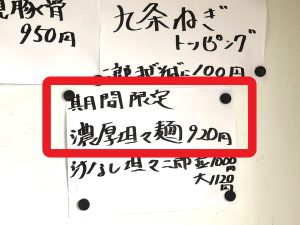 豚骨
950円
九条ねぎ
トッピング
100円
期間限定
濃厚坦々麺 920円
汁なし坦々二郎 並1000円
大1120円